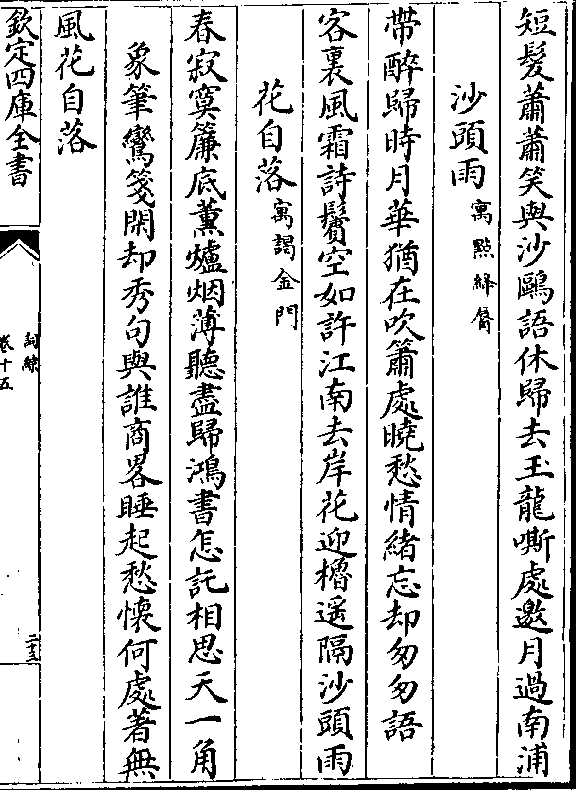 短髮蕭蕭笑與沙鷗語休歸去玉龍嘶處邀月過南浦
沙頭雨寓點絳脣
帶醉歸時月華猶在吹簫處曉愁情緒忘却匆匆語
客裏風霜詩鬢空如許江南去岸花迎櫓遥隔沙頭雨
花自落寓謁金門
春寂寞簾底薰爐烟薄聽盡歸鴻書怎託相思天一角
象筆鸞箋閑却秀句與誰商畧睡起愁懷何處著無
風花自落
欽定四庫全書
詞綜
卷十五
二十三